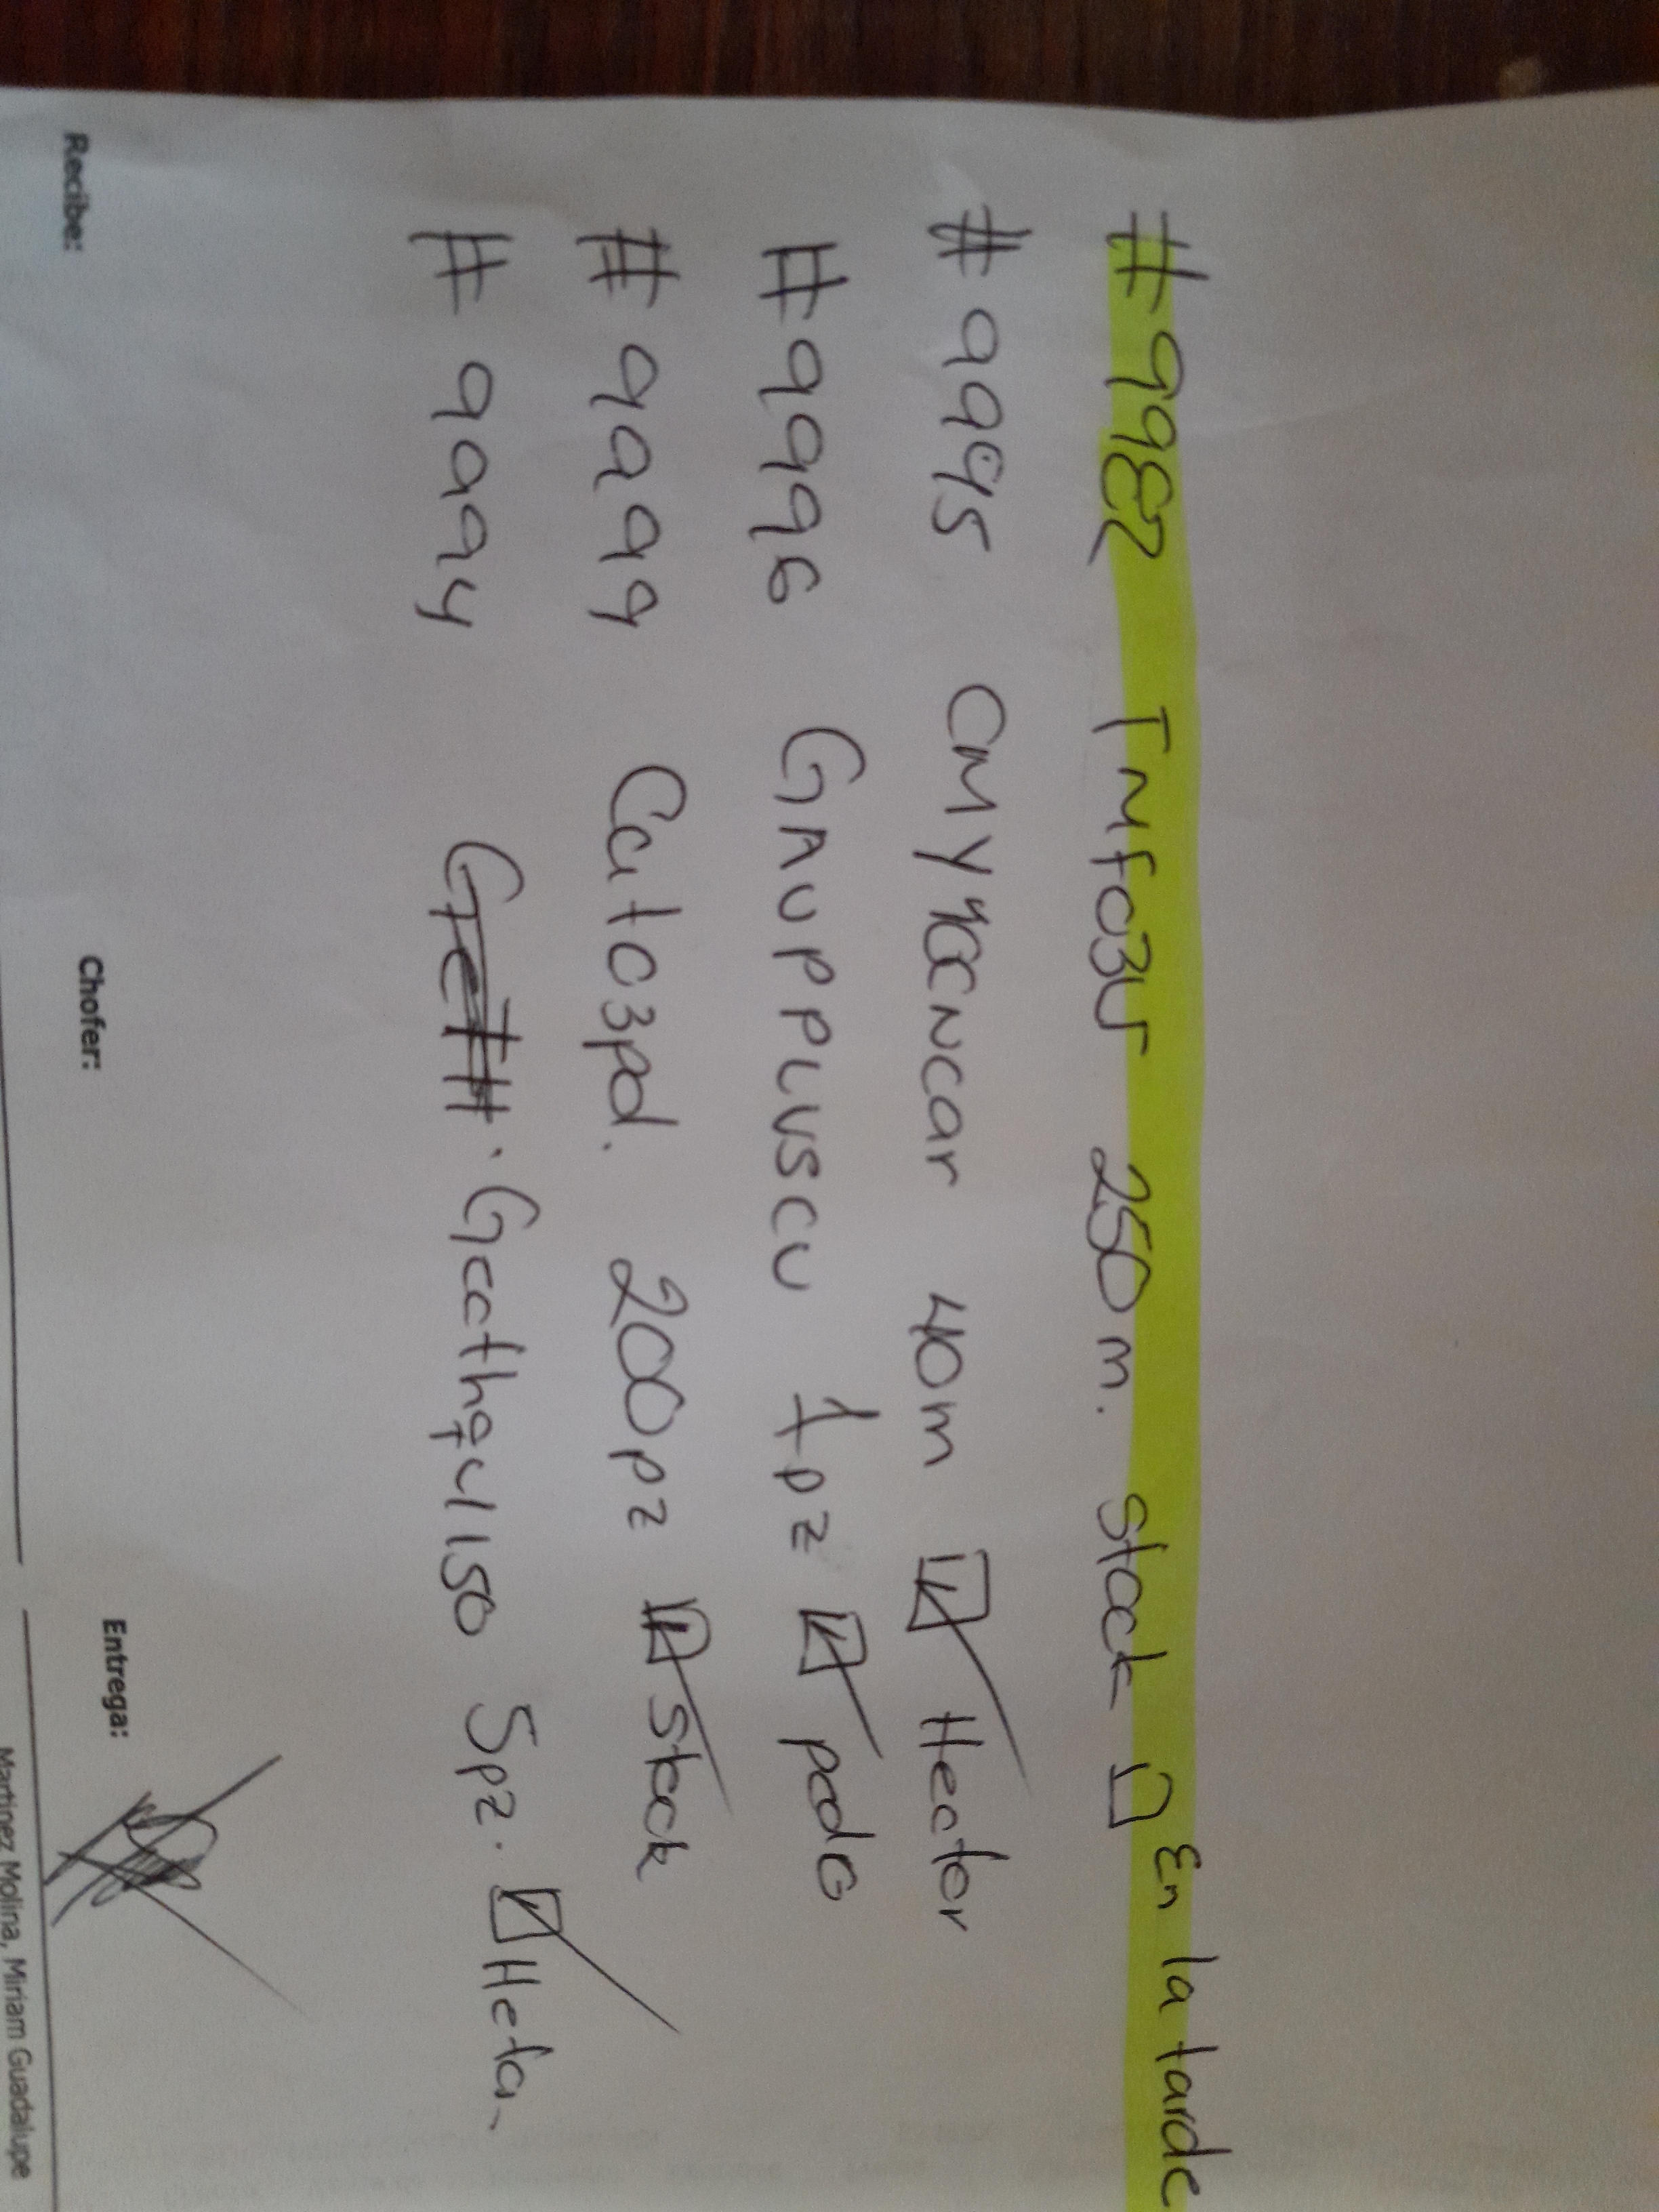 #9982 TMf03U 250m. stock En la tarde
#9995 CMY40CNCar 40m Hector
#9996 GMUPPLUSCU 1pz pcdo
#9999 Cat03pd. 200pz Stock
#9994 5pz.
Recibe: Chofer: Entrega:
Martinez Molina, Miriam Guadalupe